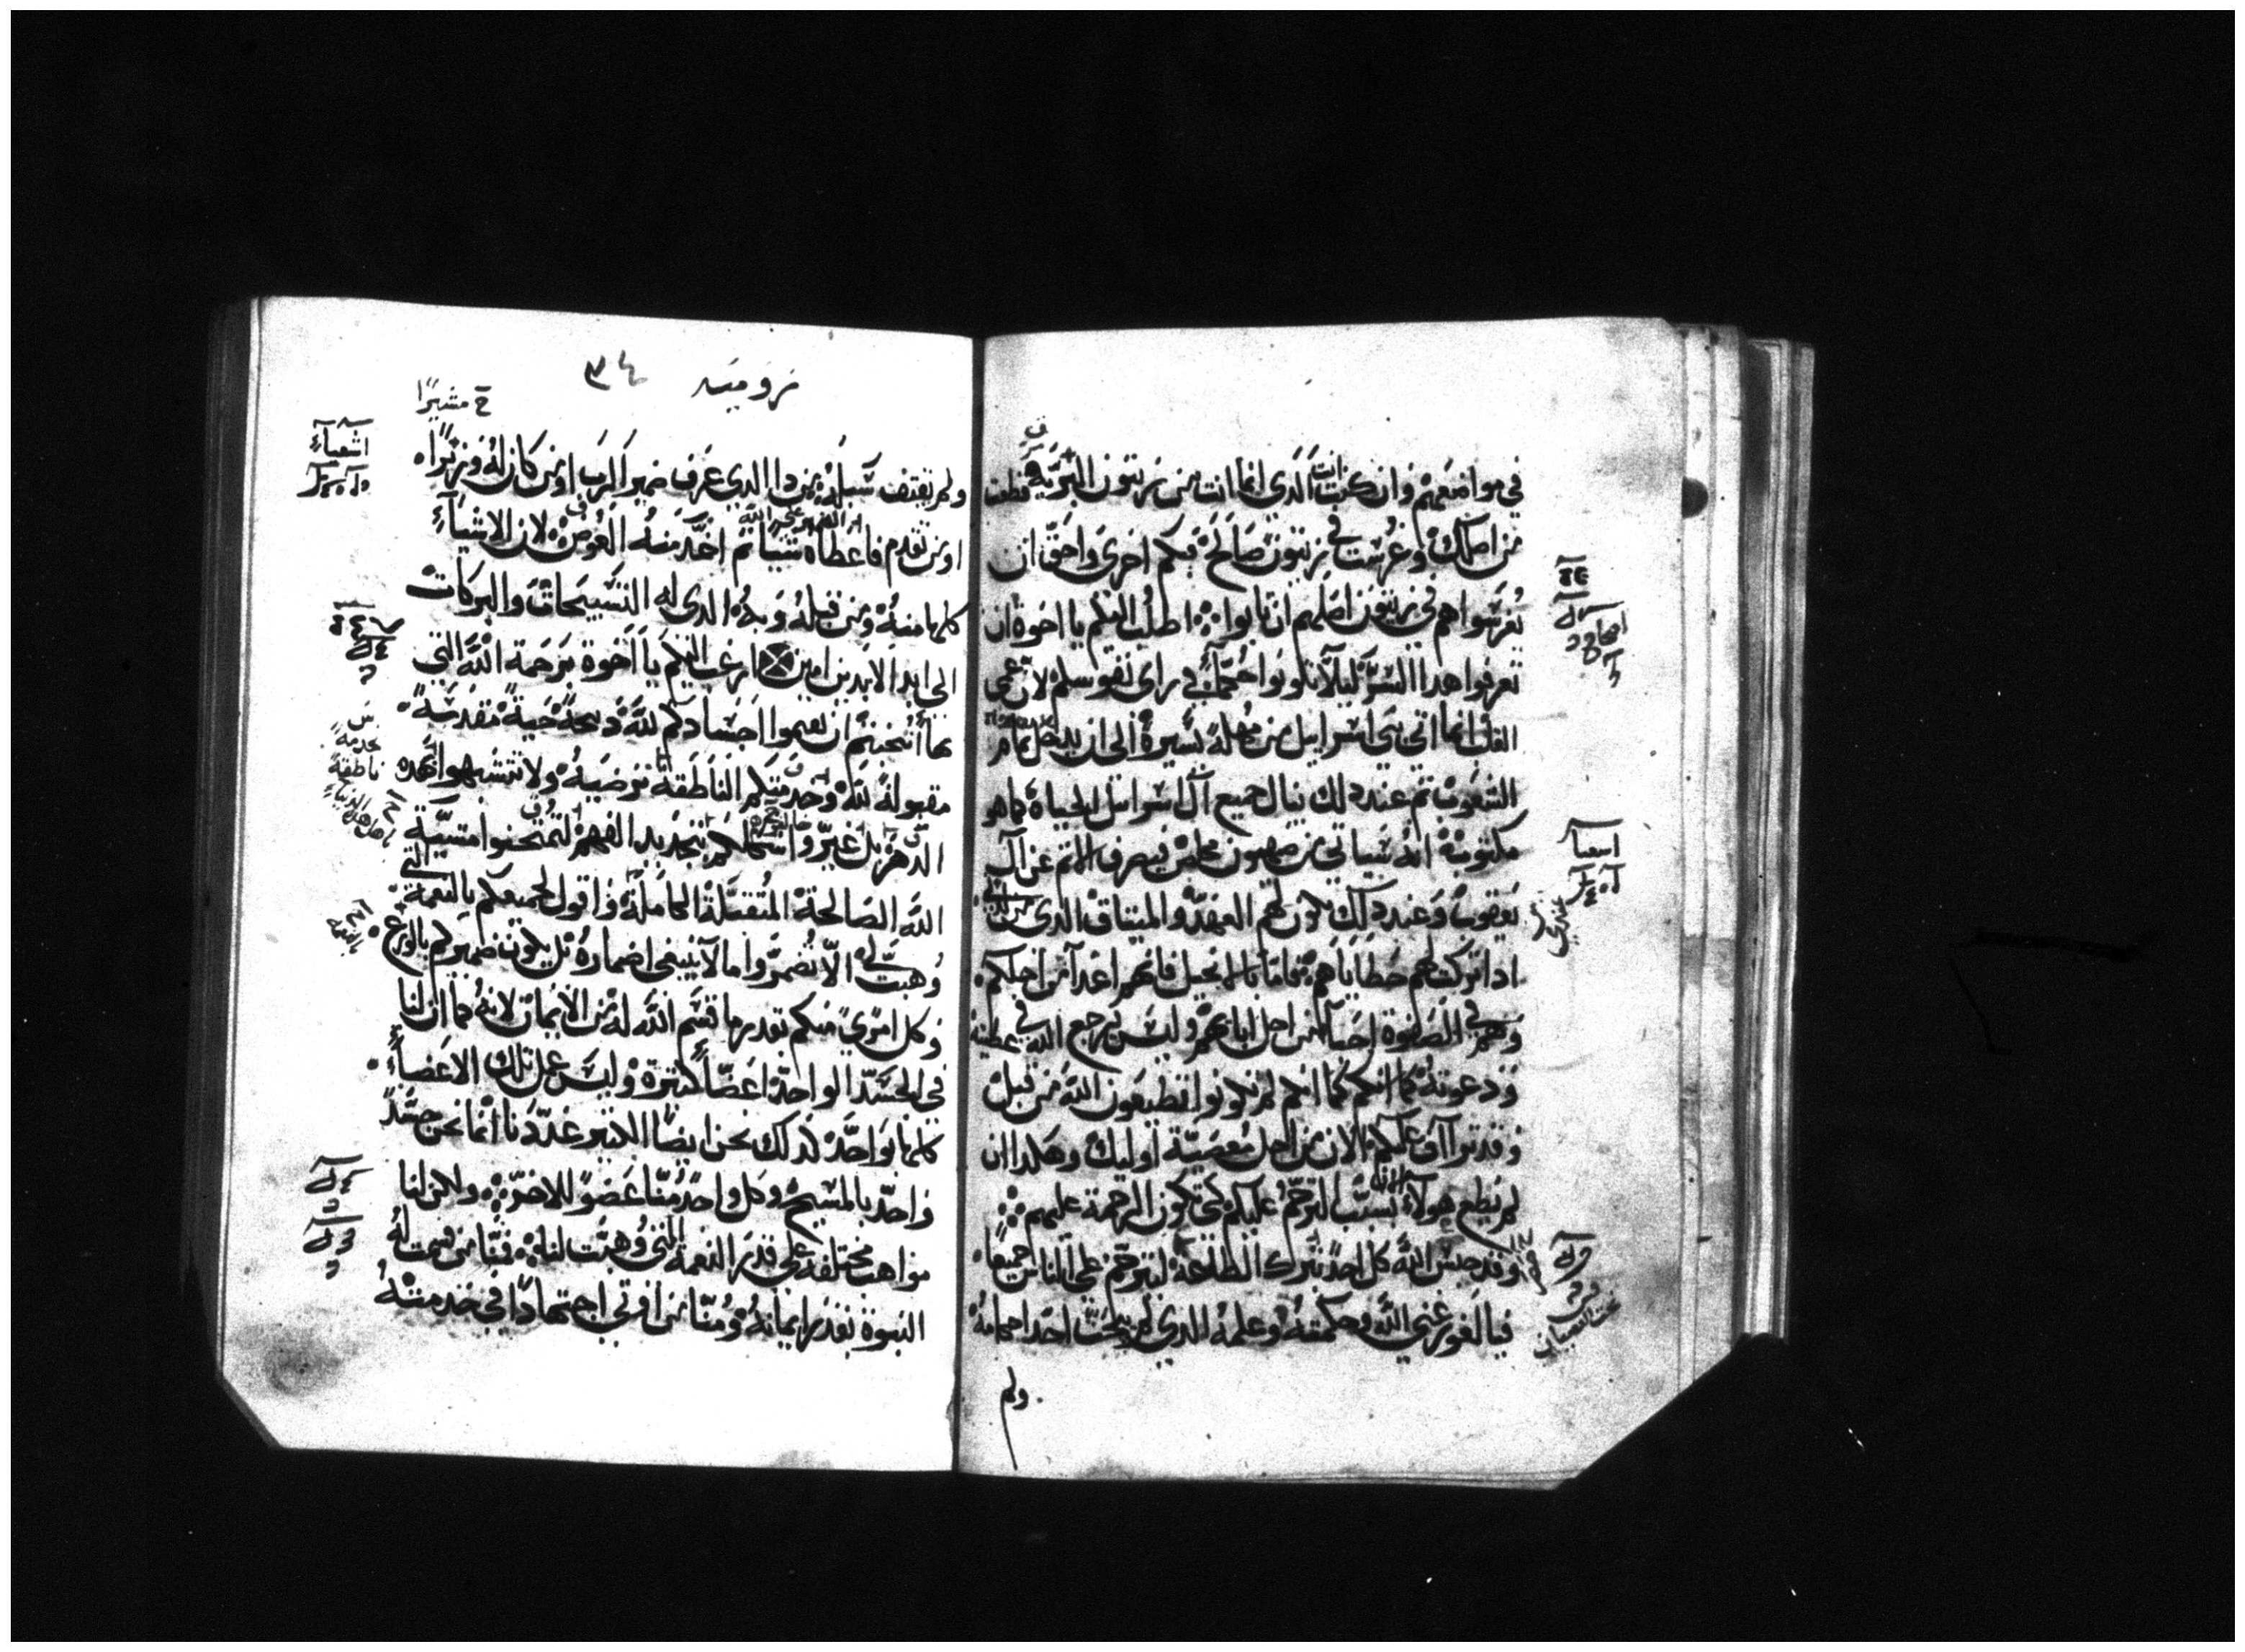 في مواضعهم وان كنت انت الذي انما انت من زيتون البرية قطعت
من اصلك وغرست في زيتون صالح فبكم احرى واحق ان
يغرسوا هم في زيتون اصلهم ان تابوا اطلب اليكم يا اخوة ان
تعرفوا هدا السر ليلا تكونوا حكمآء في راى نفوسكم لان عمى
القلب انما اتى بني اسراييل من مهلة يسيرة الى ان يدخل تمام
الشعوب ثم عند دلك ينال جميع آل اسراييل الحياة كما هو
مكتوب انه سياتي من صهيون مخلص فيصرف الاتم عن آل
يعقوب وعند دلك يكون لهم العهد والميتاق الدى
ادا تركت لهم خطاياهم فاما بالانجيل فانهم اعدآ من اجلكم
وهم في الصفوة احبآ من اجل ابايهم وليس يرجع الله في عطيته
ودعوته كما انكم لم تكونوا تطيعون الله من قبل
وقد تراآف عليكم الان من اجل معصية اوليك وهكدا ان
لم يطع هولآء الان بسبب الترحم عليكم لكى تكون الرحمة عليهم
وقد حبس الله كل احد بترك الطاعة ليترحم على الناس جميعا
فيا لغور غنى الله وحكمته وعلمه الدي لم يبحث احد احكامه
ولم
اسعيا
روميه ٣٤
خ مشيرا
ولم يقتف سبله من دا الدي عرف ضمير الرب او من كان له وزيرا
او من تقدم فاعطاه شيا تم اخد منه العوض لان الاشيآء
كلها منه ومن قبله وبه الدى له التسبيحات والبركات
الى ابد الابدين امين ارغب اليكم يا اخوة برحمة الله التي
ان تقيموا اجسادكم لله دبيحة حية مقدسة
مقبولة لله وخدمتكم الناطقة مرضية ولا تتشبهوا بهده
الدهر بل غيروا اشكالكم بتجديد الفهم لتمتحنوا مشية
الله الصالحة المتقبلة الكاملة واقول لجميعكم بالنعمة التي
وهبت لي الا تضمروا ما لا ينبغى اضماره بل يكون ضميركم بالورع
وكل امرى منكم بقدر ما قسم الله له من الايمان لانه كما ان لنا
في الجسد الواحد اعضآ كتيرة وليس عمل تلك الاعضآء
كلها بواحد كدلك نحن ايضا الكتير عددنا انما نحن جسد
واحد بالمسيح وكل واحد منا عضو للاخر ولاكن لنا
مواهب مختلفة على قدر النعمة التي وهبت لنا فمنا من قسمت له
النبوة بقدر ايمانه ومنا من اوتي اجتهادا في خدمته
اشعيآء
ناطقة